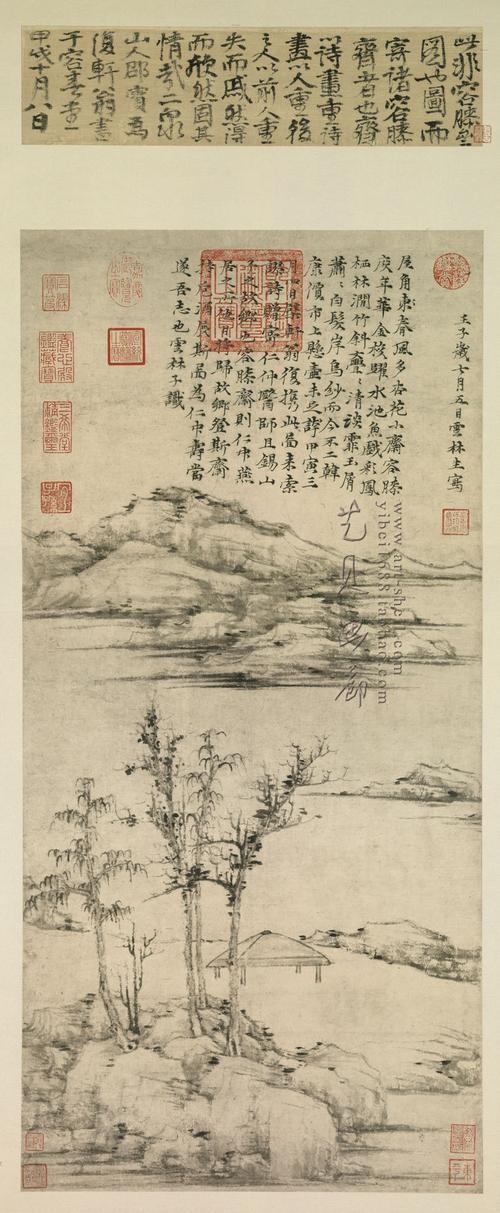 此非容膝室
圖也圖而
寄諸容膝
齋者也齋
以詩畫重詩
畫以人重後
之人以前人重
失而戚然得
而欣然固其
情哉二泉
山人邵寶為
復軒翁書
于容春堂
甲戌十月八日
壬子歲七月五日雲林生寫
屋角東春風多杏花小齋容膝
度年華金梭躍水池魚戲彩鳳
栖林澗竹斜亹〻清談霏玉屑
蕭〻白髮岸烏紗而今不二韓
康價市上懸壺未足誇甲寅三
月四日檗軒翁復携此圖來索
謬詩贈寄仁仲醫師且錫山
予之故鄉也容膝齋則仁仲燕
居之所他日將歸故鄉登斯齋
持卮酒展斯圖為仁仲壽當
遂吾志也雲林子識
www.art-shc.com
yibei1688.taobao.com